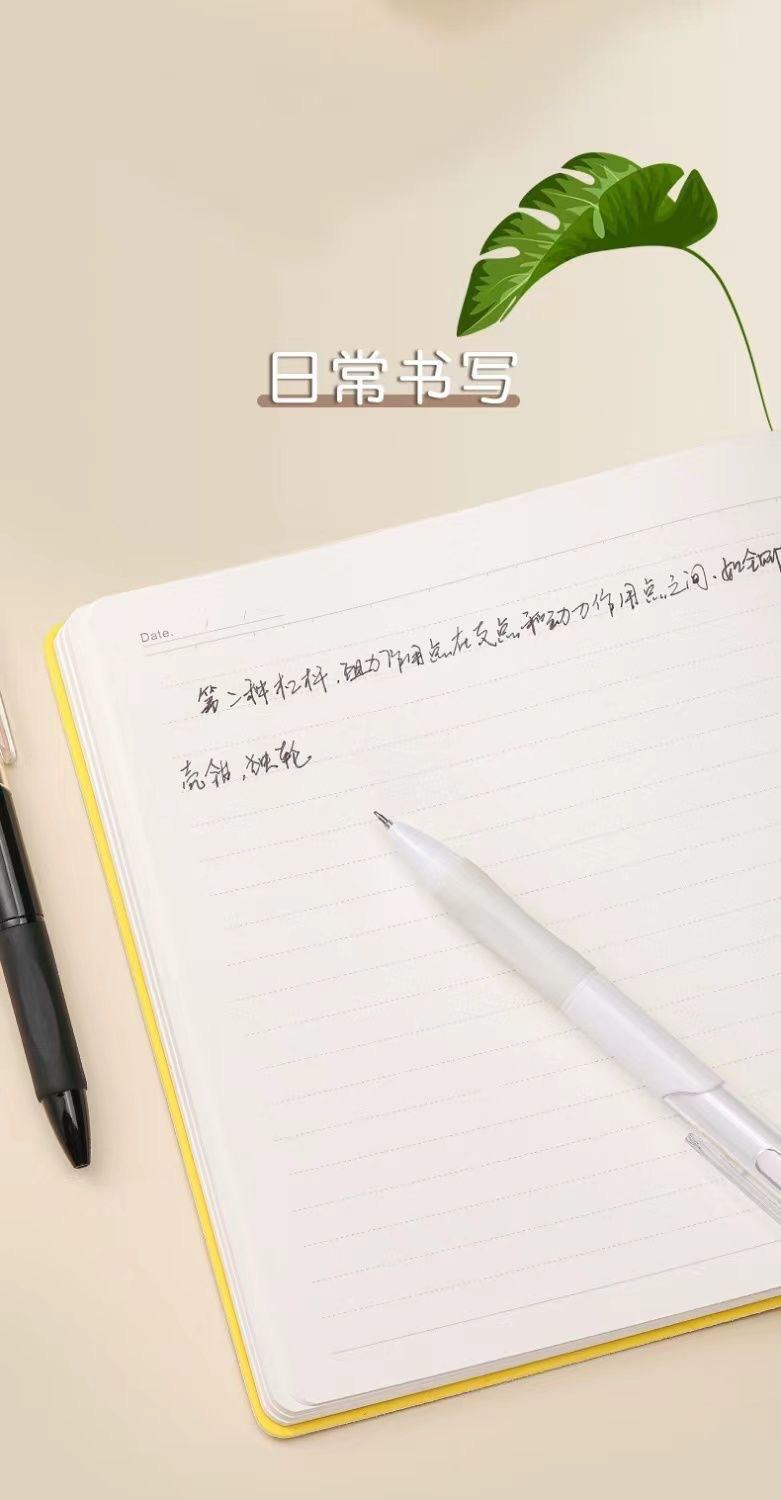 日常书写
Date. / /
第二种杠杆，阻力作用点在支点和动力作用点之间，如金
壳钳，独轮